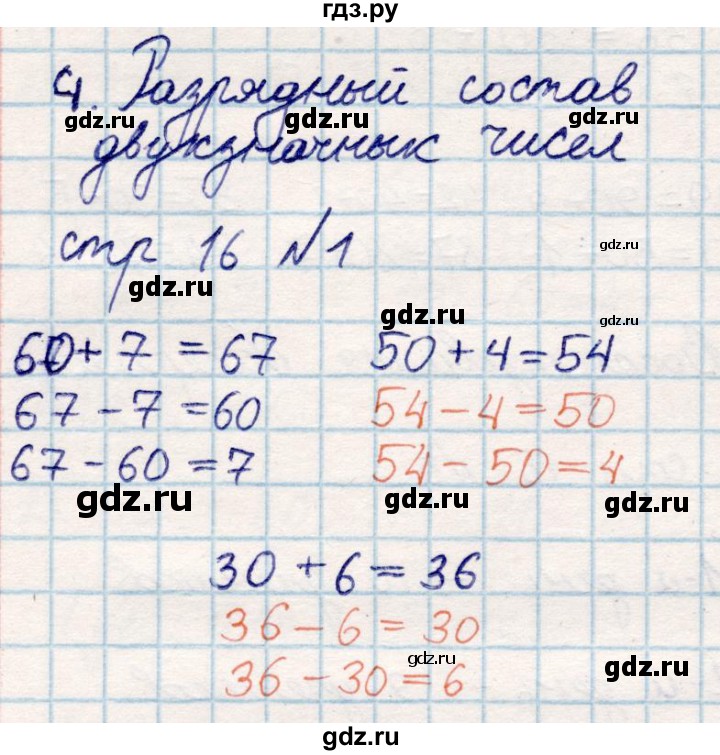 гдз.ру
4. Разрядный состав
gdz.ru gdz.ru
двухзначных чисел
стр 16 №1
gdz.ru
gdz.ru
gdz.ru
gdz.ru
60 + 7 = 67 50 + 4 = 54
67 - 7 = 60 54 - 4 = 50
67 - 60 = 7 54 - 50 = 4
gdz.ru gdz.ru gdz.ru
30 + 6 = 36
36 - 6 = 30
36 - 30 = 6
gdz.ru gdz.ru
gdz.ru